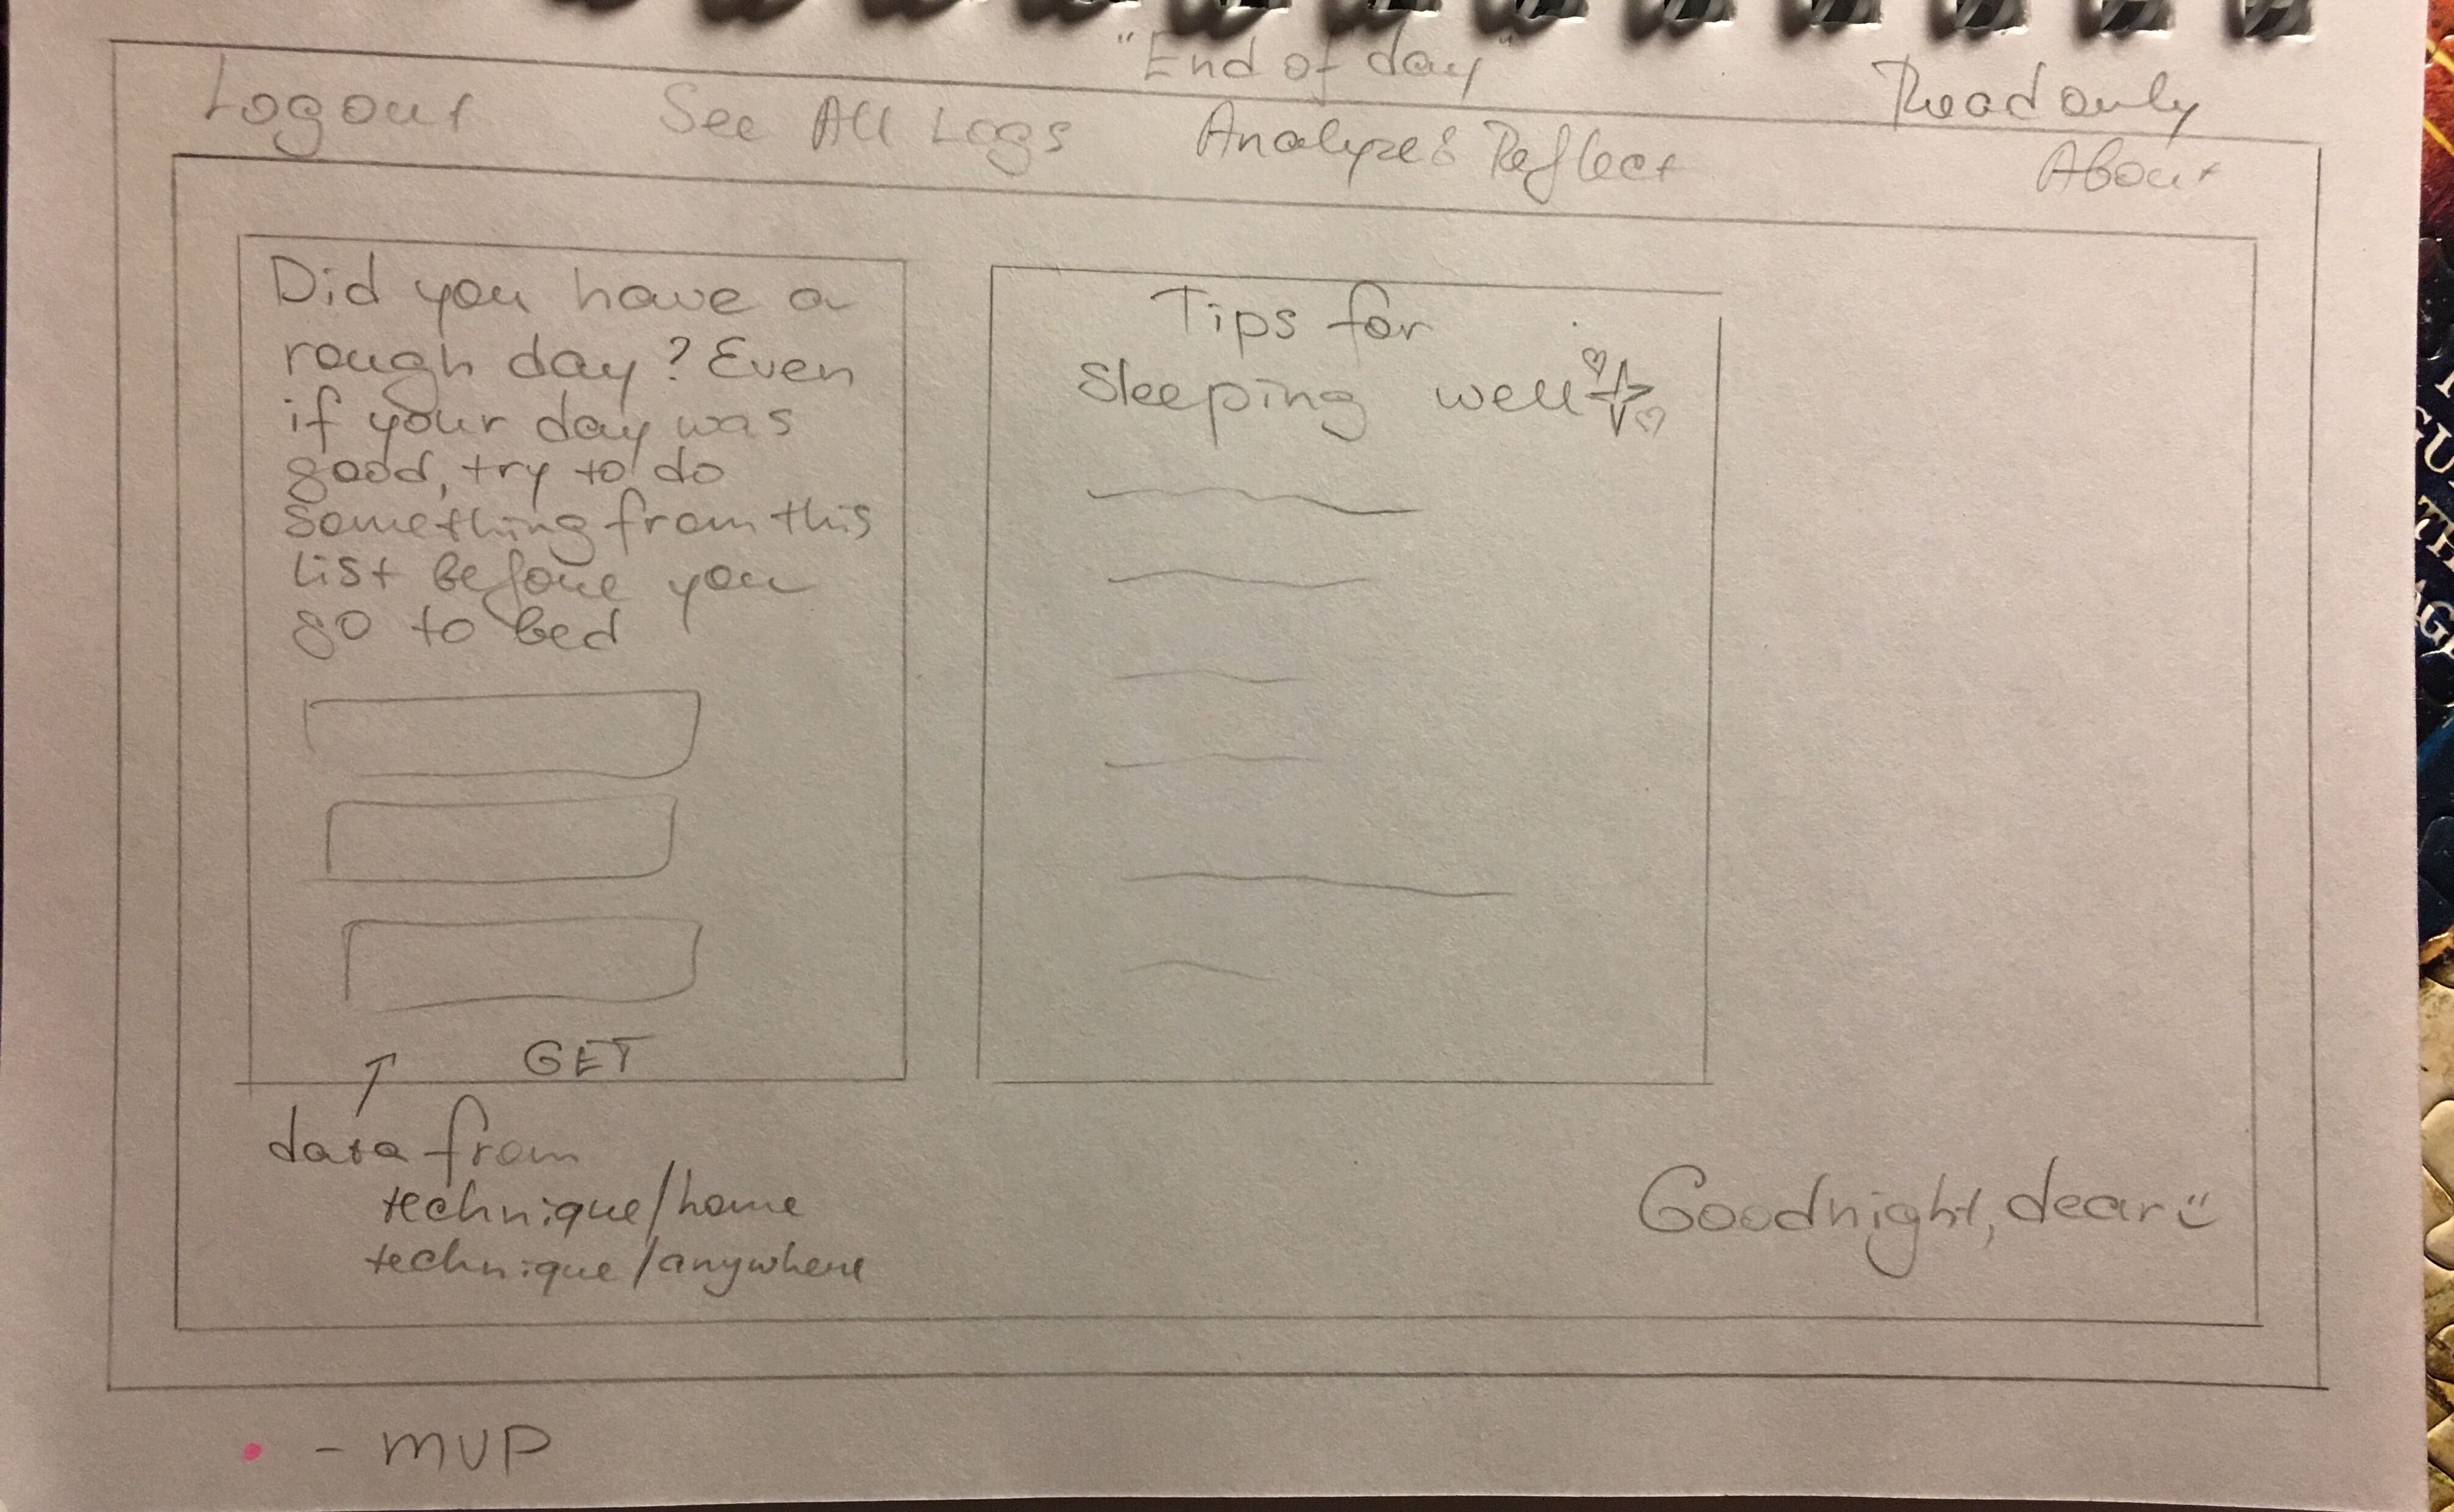 "End of day"
Read only
Logout
See All Logs
Analyze & Reflect
About
Did you have a
rough day? Even
if your day was
good, try to do
something from this
list before you
go to bed
GET
data from
technique/home
technique/anywhere
Tips for
Sleeping well
Goodnight, dear
- MVP